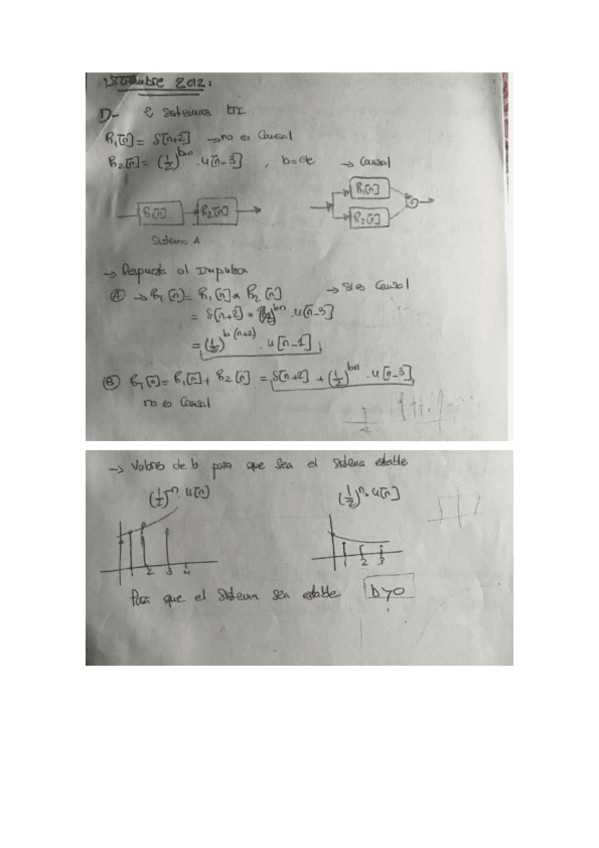 2012:
1)- 2 Sistemas LTI
h₁[n] = δ[n+2] → no es Causal
h₂[n] = (1/2)^bn · u[n-3] , b=cte → Causal
h₁[n] h₂[n]
h₁[n]
h₂[n]
+
Sistema A
→ Respuesta al Impulso
(A) → h_T[n] = h₁[n] * h₂[n] → Si es Causal
= δ[n+2] * (1/2)^bn · u[n-3]
= (1/2)^b(n+2) · u[n-1]
(B) h_T[n] = h₁[n] + h₂[n] = δ[n+2] + (1/2)^bn · u[n-3]
no es Causal
-2
→ Valores de b para que sea el sistema estable
(1/2)^-n · u[n] (1/2)^n · u[n]
1 2 3 4
1 2 3
Para que el sistema sea estable b>0